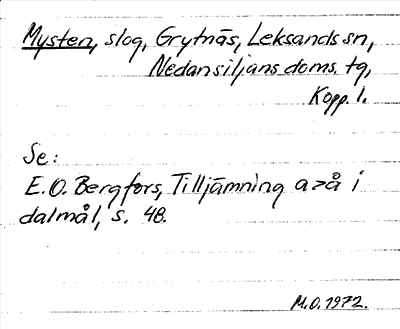 Mysten, slog, Grytnäs, Leksands sn,
Nedansiljans doms. tg,
Kopp. l.
Se:
E.O. Bergfors, Tilljämning a>å i
dalmål, s. 48.
M.O. 1972.